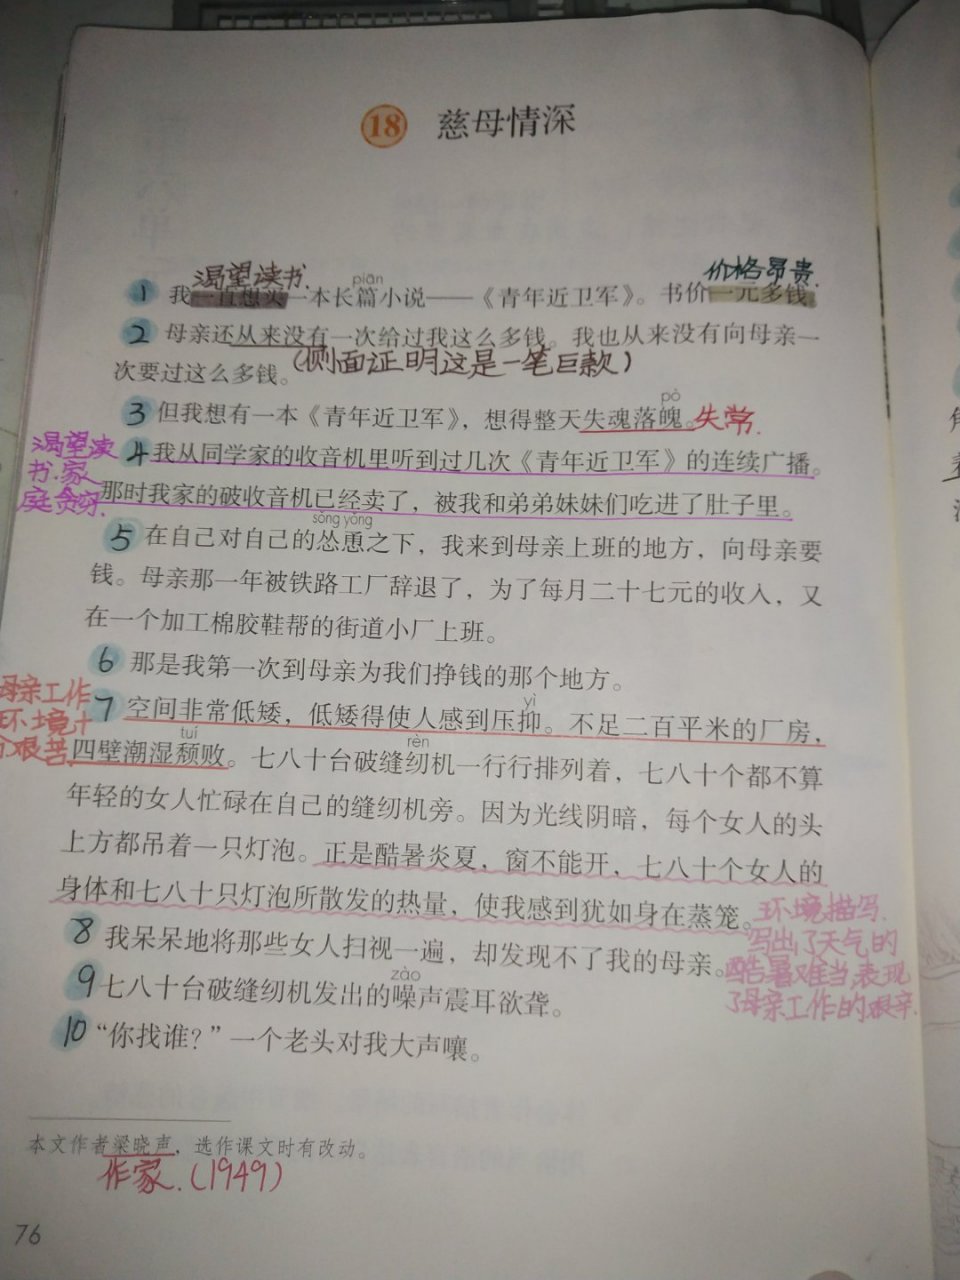 18 慈母情深
渴望读书.
piān
价格昂贵.
1 我一直想买一本长篇小说——《青年近卫军》。书价一元多钱。
2 母亲还从来没有一次给过我这么多钱。我也从来没有向母亲一
次要过这么多钱。
(侧面证明这是一笔巨款)
pò
3 但我想有一本《青年近卫军》，想得整天失魂落魄。
失常.
渴望读
书.家
庭贪穷.
4 我从同学家的收音机里听到过几次《青年近卫军》的连续广播。
那时我家的破收音机已经卖了，被我和弟弟妹妹们吃进了肚子里。
sǒng yǒng
5 在自己对自己的怂恿之下，我来到母亲上班的地方，向母亲要
钱。母亲那一年被铁路工厂辞退了，为了每月二十七元的收入，又
在一个加工棉胶鞋帮的街道小厂上班。
6 那是我第一次到母亲为我们挣钱的那个地方。
母亲工作
环境十
分艰苦.
yì
7 空间非常低矮，低矮得使人感到压抑。不足二百平米的厂房，
tuí
rèn
四壁潮湿颓败。七八十台破缝纫机一行行排列着，七八十个都不算
年轻的女人忙碌在自己的缝纫机旁。因为光线阴暗，每个女人的头
上方都吊着一只灯泡。正是酷暑炎夏，窗不能开，七八十个女人的
身体和七八十只灯泡所散发的热量，使我感到犹如身在蒸笼。
环境描写.
写出了天气的
酷暑难当,表现
了母亲工作的艰辛.
8 我呆呆地将那些女人扫视一遍，却发现不了我的母亲。
zào
9 七八十台破缝纫机发出的噪声震耳欲聋。
10 “你找谁？”一个老头对我大声嚷。
本文作者梁晓声，选作课文时有改动。
作家.(1949)
76